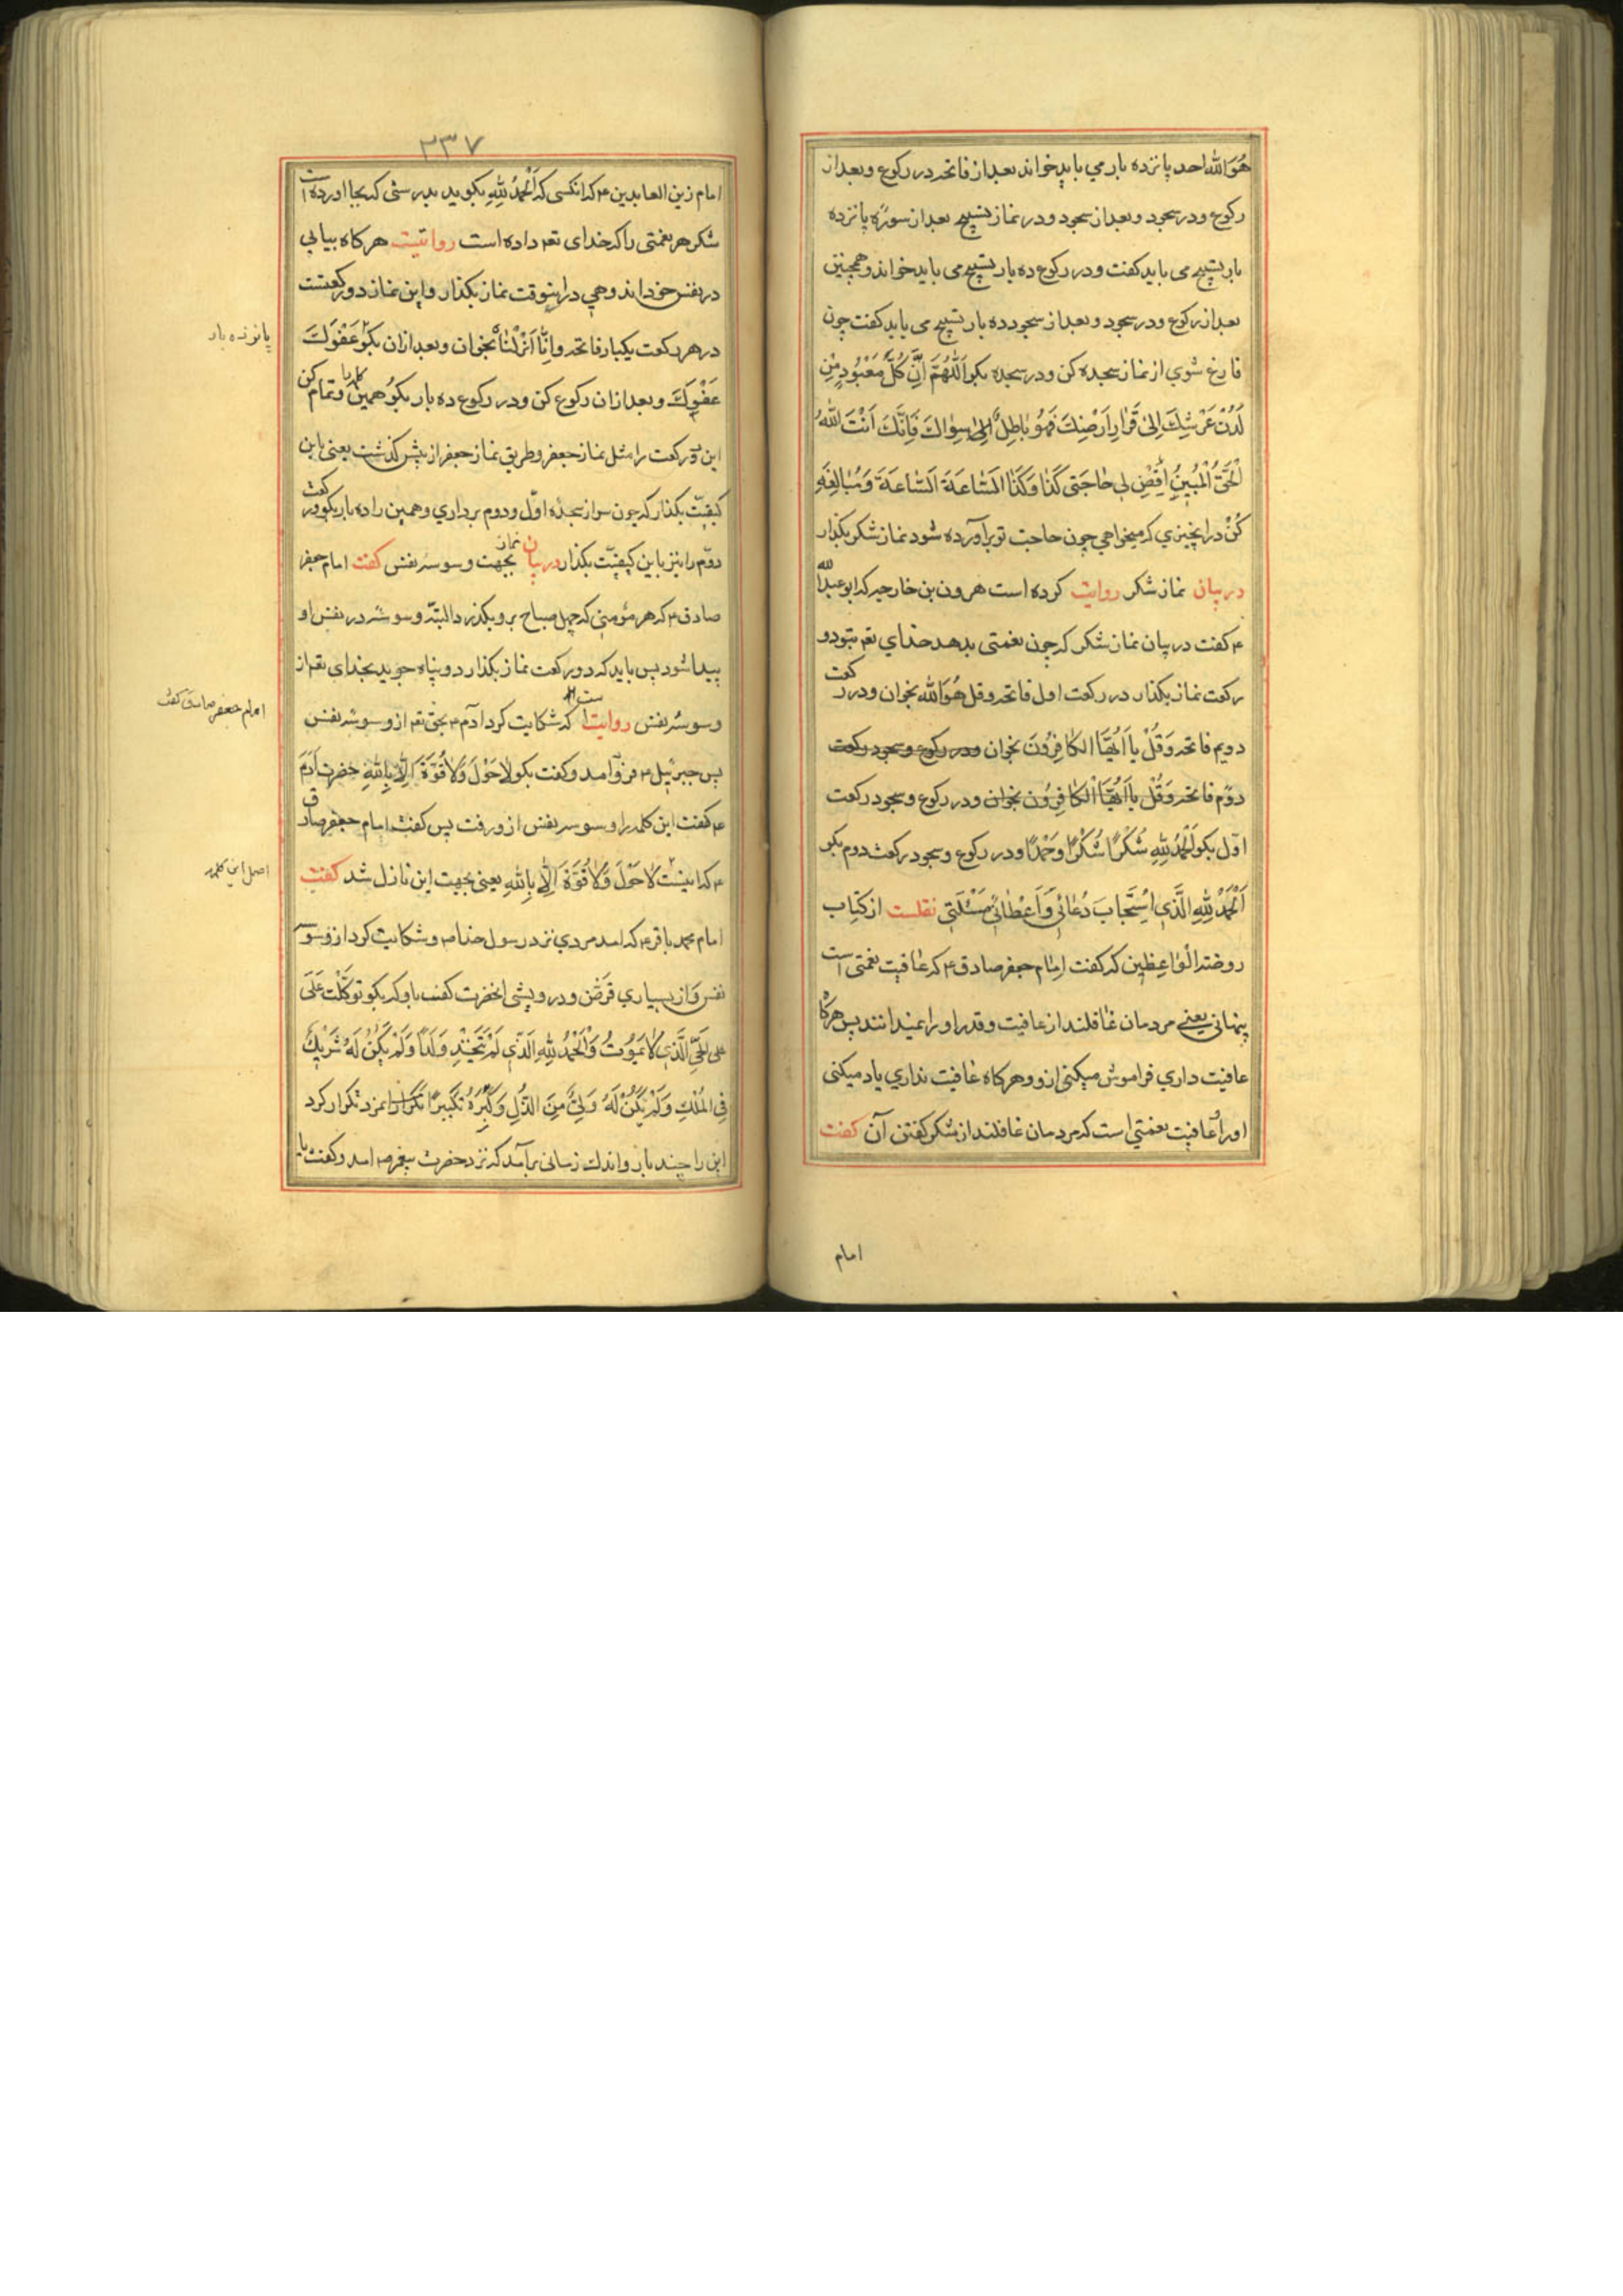 هُوَ اللّٰه احد پانزده بار می باید خواند بعد از فاتحه در رکوع و بعد از
رکوع و در سجود و بعد از سجود و در نماز تسبیح بعد از سوره پانزده
بار تسبیح می باید کفت و در رکوع ده بار تسبیح می باید خواند و همچنین
بعد از رکوع و در سجود و بعد از سجود ده بار تسبیح می باید کفت چون
فارغ شوی از نماز سجده کن و در سجده بکو اَللّٰهُمَّ اِنَّ کُلَّ مَعْبُودٍ مِنْ
لَدُنْ عَرْشِكَ اِلیٰ قَرٰارِ اَرْضِكَ فَهُوَ بٰاطِلٌ اِلیٰ سِوٰاكَ فَاِنَّكَ اَنْتَ اللّٰهُ
الْحَقُّ الْمُبِینُ اِقْضِ لِی حٰاجَتی کَذٰا وَکَذٰا اَلسّٰاعَةَ اَلسّٰاعَةَ وَمُبٰالِغَه
کُنْ در انچیزی که میخواهی چون حاجت تو برآورده شود نماز شکر بکذار
در بیان نماز شکر روایت کرده است هرون بن خارجه که ابو عبد اللّٰه
ع کفت در بیان نماز شکر که چون نعمتی بدهد خدای تعـ بتو دو
رکعت نماز بکذار در رکعت اول فاتحه و قل هُوَ اللّٰه بخوان و در رکعت
دویم فاتحه وَقُلْ یٰا اَیُّهَا الکٰافِرُونَ بخوان و در رکوع و سجود رکعت
دوّم فاتحه وَقُلْ یٰا اَیُّهَا الْکٰافِرُون بخوان و در رکوع و سجود رکعت
اوّل بکو اَلْحَمْدُ لِلّٰهِ شُکْرًا شُکْرًا وَحَمْدًا و در رکوع و سجود رکعت دوم بکو
اَلْحَمْدُ لِلّٰهِ الَّذِی اسْتَجٰابَ دُعٰائِی وَاَعْطٰانِی مَسْئَلَتِی نقلست از کتاب
روضة الواعظین که کفت امام جعفر صادق ع که عافیت نعمتی است
پنهانی یعنی مردمان غافلند از عافیت و قدر او را نمیدانند پس هرکاه
عافیت داری فراموش میکنی ازو و هرکاه عافیت نداری یاد میکنی
او را عافیت نعمتی است که مردمان غافلند از شکر کفتن آن کفت
امام
۲۳۷
امام زین العابدین ع که انکسی که اَلْحَمْدُ لِلّٰهِ بکوید بدرستی که بجا اورده است
شکر هر نعمتی را که خدای تعـ داده است روایتست هرکاه بیابی
در نفس خود اندوهی در اینوقت نماز بکذار و این نماز دو رکعتست
در هر رکعت یکبار فاتحه و اِنّٰا اَنْزَلْنٰاهُ بخوان و بعد ازان بکو عَفْوَكَ
پانزده بار
عَفْوَكَ و بعد ازان رکوع کن و در رکوع ده بار بکو همین کلمه را و تمام کن
این دو رکعت را مثل نماز جعفر و طریق نماز جعفر از پیش کذشت یعنی باین
کیفیّت بکذار که چون سر از سجده اوّل و دوم برداری و همین را ده بار بکو و رکعت
دوّم را نیز باین کیفیّت بکذار در بیان نماز بجهت وسوسه نفس کفت امام جعفر
صادق ع که هر مؤمنی که چهل صباح برو بکذرد البتّه وسوسه در نفس او
پیدا شود پس باید که دو رکعت نماز بکذارد و پناه جوید بخدای تعـ از
وسوسه نفس روایتست که شکایت کرد آدم ع بحق تعـ از وسوسه نفس
امام جعفر صادق کفت
پس جبرئیل ع فرو آمد و کفت بکو لٰا حَوْلَ وَلٰا قُوَّةَ اِلّٰا بِاللّٰهِ حضرت آدَم
ع کفت این کلمه را وسوسه نفس ازو رفت پس کفت امام جعفر صادق
ع که اینست لٰا حَوْلَ وَلٰا قُوَّةَ اِلّٰا بِاللّٰهِ یعنی بجهت این نازل شد کفت
اصل این کلمه
امام محمد باقر ع که امد مردی نزد رسول خدا ص و شکایت کرد از وسوسه
نفس و از بسیاری قرض و درویشی انحضرت کفت باو که بکو توکّلْت عَلَی
علی الحَیِّ الَّذِی لٰا یَمُوتُ وَالْحَمْدُ لِلّٰهِ الَّذِی لَمْ یَتَّخِذْ وَلَدًا وَلَمْ یَکُنْ لَهُ شَرِیكٌ
فِی الْمُلْكِ وَلَمْ یَکُنْ لَهُ وَلِیٌّ مِنَ الذُّلِّ وَکَبِّرْهُ تَکْبِیرًا تکرار انمرد تکرار کرد
این را چند بار و اندك زمانی برآمد که نزد حضرت پیغمبر ص امد و کفت یا